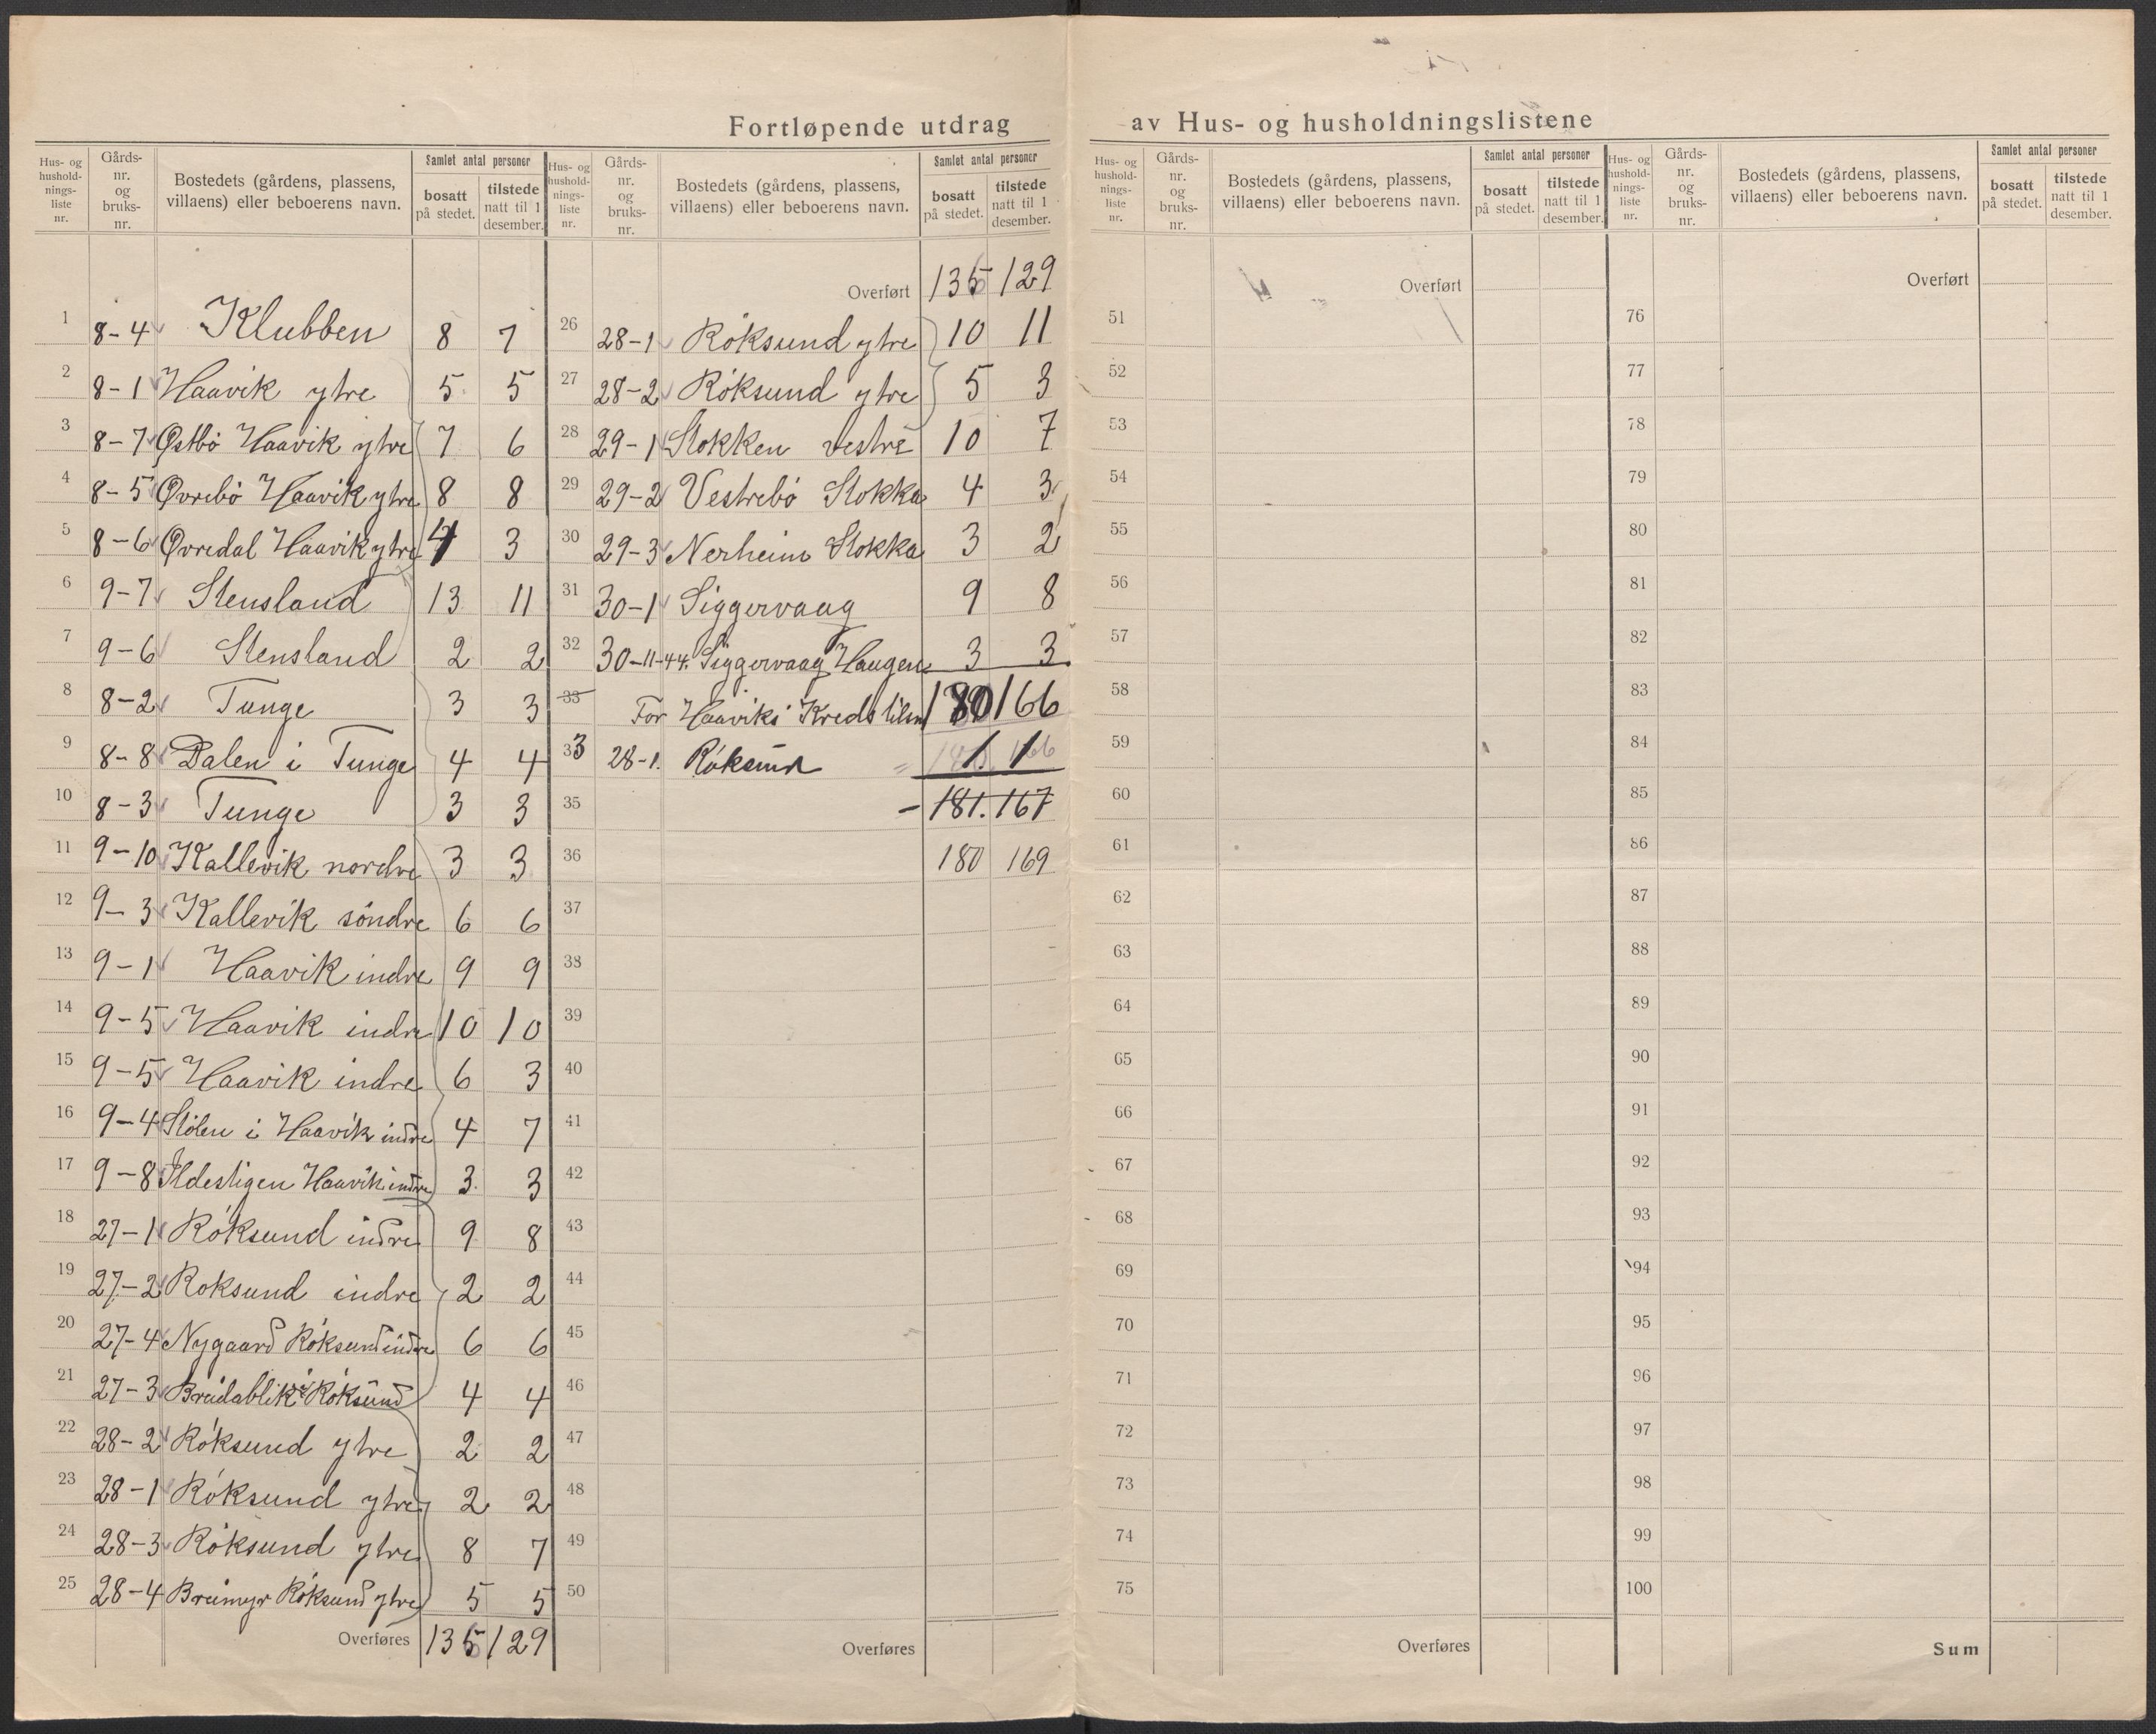 Fortløpende utdrag av Hus- og husholdningslistene
Hus- og hushold- nings- liste nr. Gårds- nr. og bruks- nr. Bostedets (gårdens, plassens, villaens) eller beboerens navn. Samlet antal personer bosatt på stedet. tilstede natt til 1 desember.
1 8-4 Klubben 8 7
2 8-1 Haavik ytre 5 5
3 8-7 Østbö Haavik ytre 7 6
4 8-5 Øvrebö Haavik ytre 8 8
5 8-6 Øvredal Haavik ytre 4 3
6 9-7 Stensland 13 11
7 9-6 Stensland 2 2
8 8-2 Tunge 3 3
9 8-8 Dalen i Tunge 4 4
10 8-3 Tunge 3 3
11 9-10 Kallevik nordre 3 3
12 9-3 Kallevik söndre 6 6
13 9-1 Haavik indre 9 9
14 9-5 Haavik indre 10 10
15 9-5 Haavik indre 6 3
16 9-4 Stölen i Haavik indre 4 7
17 9-8 Ildestigen Haavik indre 3 3
18 27-1 Röksund indre 9 8
19 27-2 Roksund indre 2 2
20 27-4 Nygaard Röksund indre 6 6
21 27-3 Breidablik i Röksund 4 4
22 28-2 Röksund ytre 2 2
23 28-1 Röksund ytre 2 2
24 28-3 Röksund ytre 8 7
25 28-4 Breimyr Röksund ytre 5 5
Overføres 135 129
Hus- og hushold- nings- liste nr. Gårds- nr. og bruks- nr. Bostedets (gårdens, plassens, villaens) eller beboerens navn. Samlet antal personer bosatt på stedet. tilstede natt til 1 desember.
Overført 135 129
26 28-1 Röksund ytre 10 11
27 28-2 Röksund ytre 5 3
28 29-1 Stokken vestre 10 7
29 29-2 Vestrebö Stokka 4 3
30 29-3 Nerheim Stokka 3 2
31 30-1 Siggervaag 9 8
32 30-11-44. Siggervaag Haugen 3 3
33 For Haaviks Kreds tilsm 180 166
33 28-1. Röksund 1 1
35 181. 167
36 180 169
37
38
39
40
41
42
43
44
45
46
47
48
49
50
Overføres
Hus- og hushold- nings- liste nr. Gårds- nr. og bruks- nr. Bostedets (gårdens, plassens, villaens) eller beboerens navn. Samlet antal personer bosatt på stedet. tilstede natt til 1 desember.
Overført
51
52
53
54
55
56
57
58
59
60
61
62
63
64
65
66
67
68
69
70
71
72
73
74
75
Overføres
Hus- og hushold- nings- liste nr. Gårds- nr. og bruks- nr. Bostedets (gårdens, plassens, villaens) eller beboerens navn. Samlet antal personer bosatt på stedet. tilstede natt til 1 desember.
Overført
76
77
78
79
80
81
82
83
84
85
86
87
88
89
90
91
92
93
94
95
96
97
98
99
100
Sum